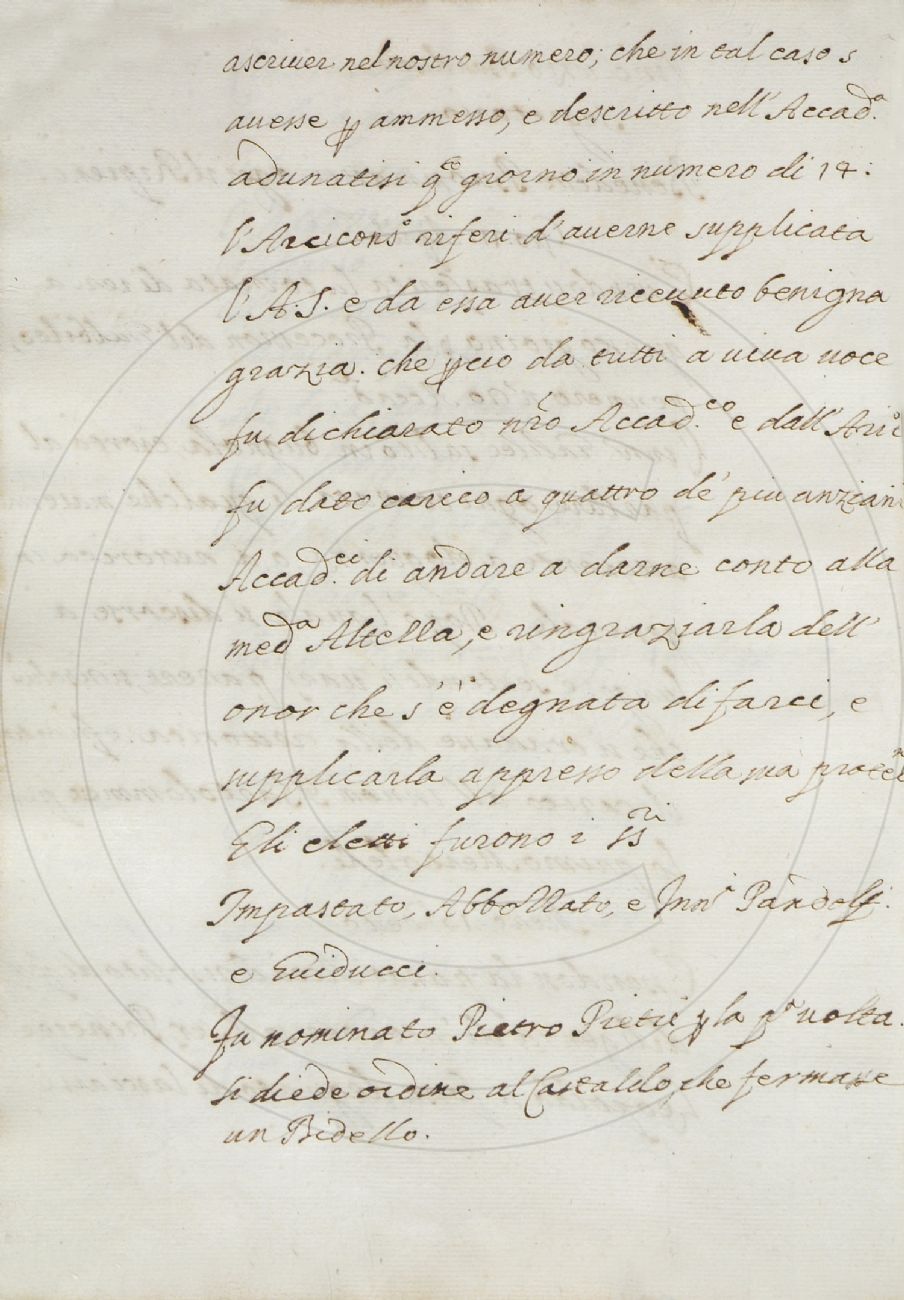 ascriver nel nostro numero; che in tal caso s
avesse p ammesso, e descritto nell' Accad.ª
adunatisi q.to giorno in numero di 14:
l'Arcicons.º riferi d'averne supplicata
l'A.S. e da essa aver ricevuto benigna
grazia. che pciò da tutti a viva voce
fu dichiarato nr̃o Accad.co e dall'Aric
fu dato carico a quattro de' piu anziani
Accad.ci di andare a darne conto alla
med.ª Altezza, e ringraziarla dell'
onor che s'è degnata di farci, e
supplicarla appresso della sua protez
Gli eletti furono i SS.ri
Impastato, Abbozzato, e Inn.º Pandolf.
e Guiducci.
Fu nominato Pietro Pieti p la p.ª volta.
Si diede ordine al Castaldo che fermasse
un Bidello.